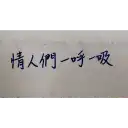 情人們一呼一吸